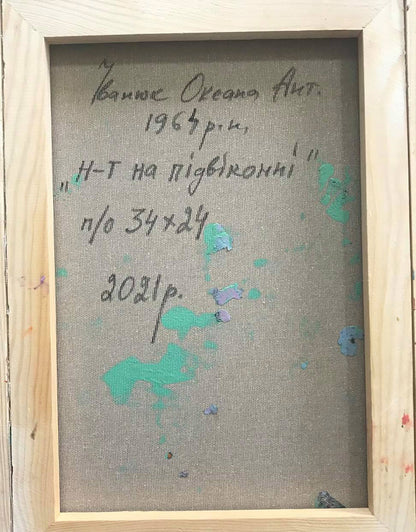 Іванюк Оксана Ант.
1964 р.н.
„Н-Т на підвіконні"
п/о 34×24
2021р.